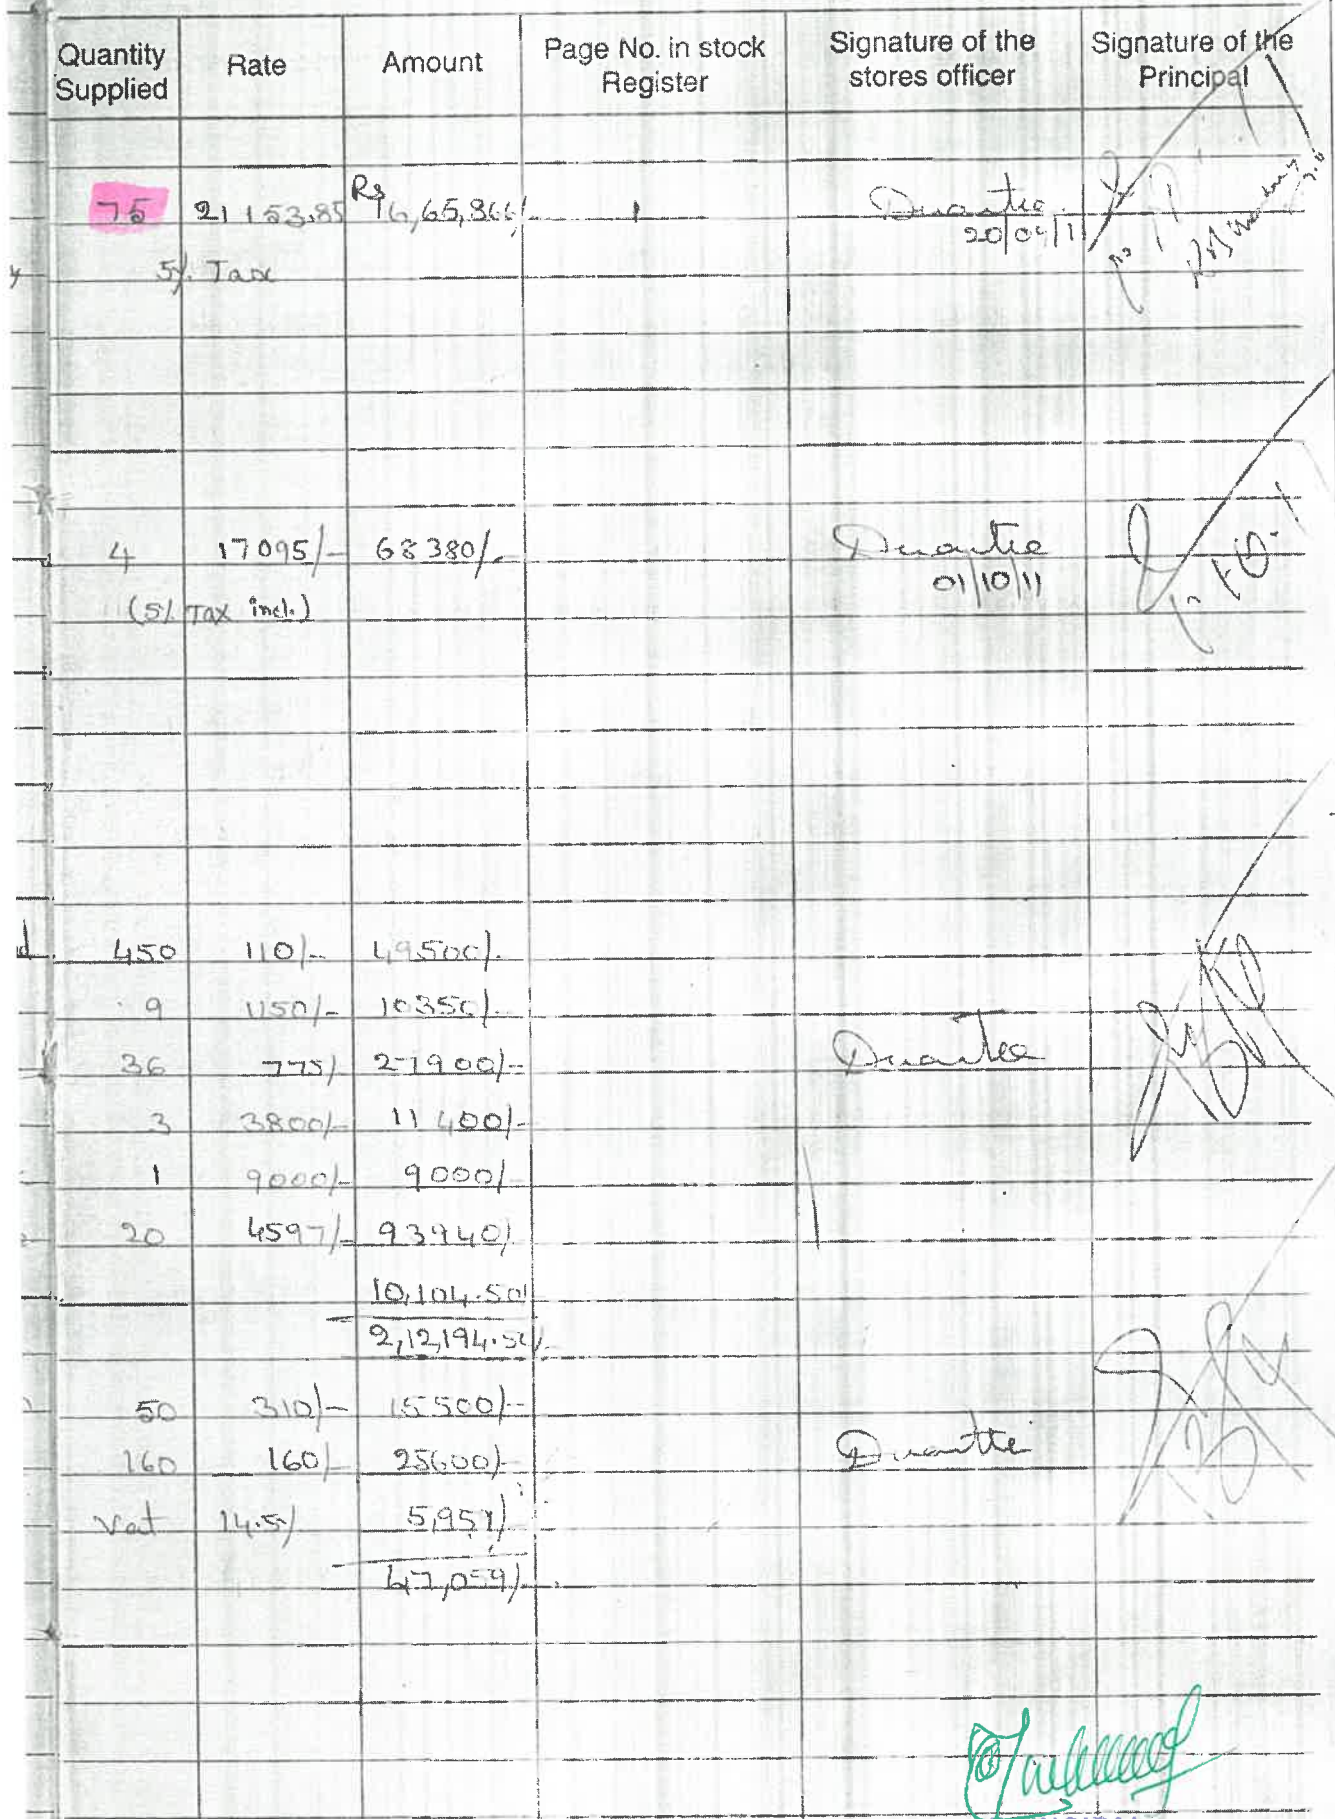 Quantity Supplied Rate Amount Page No. in stock Register Signature of the stores officer Signature of the Principal
75 21153.85 Rs 16,65,866/- 1
5% Tax
4 17095/- 68380/-
01/10/11
(5% Tax incl.)
450 110/- 49500/-
9 1150/- 10350/-
36 775/- 27900/-
3 3800/- 11400/-
1 9000/- 9000/-
20 4597/- 93940/-
10,104.50/
2,12,194.50/-
50 310/- 15500/-
160 160/- 25600/-
Vat 14.5% 5,959/-
47,059/-